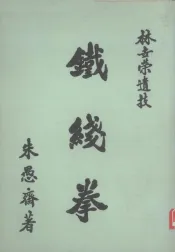 林世榮遺技
鐵綫拳
朱愚齋著